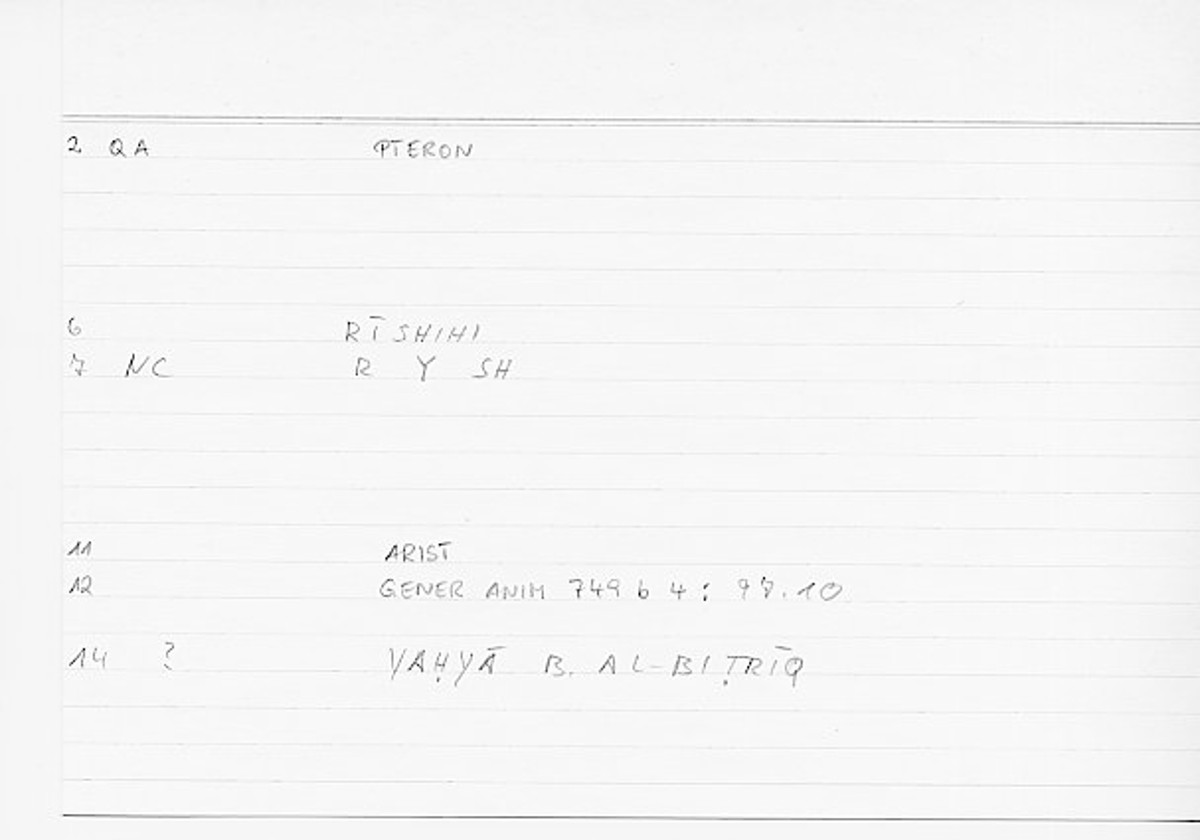 2 QA PTERON
6 RĪSHIHI
7 NC R Y SH
11 ARIST
12 GENER ANIM 749 b 4 : 97.10
14 ? YAḤYĀ B. AL-BIṬRĪQ